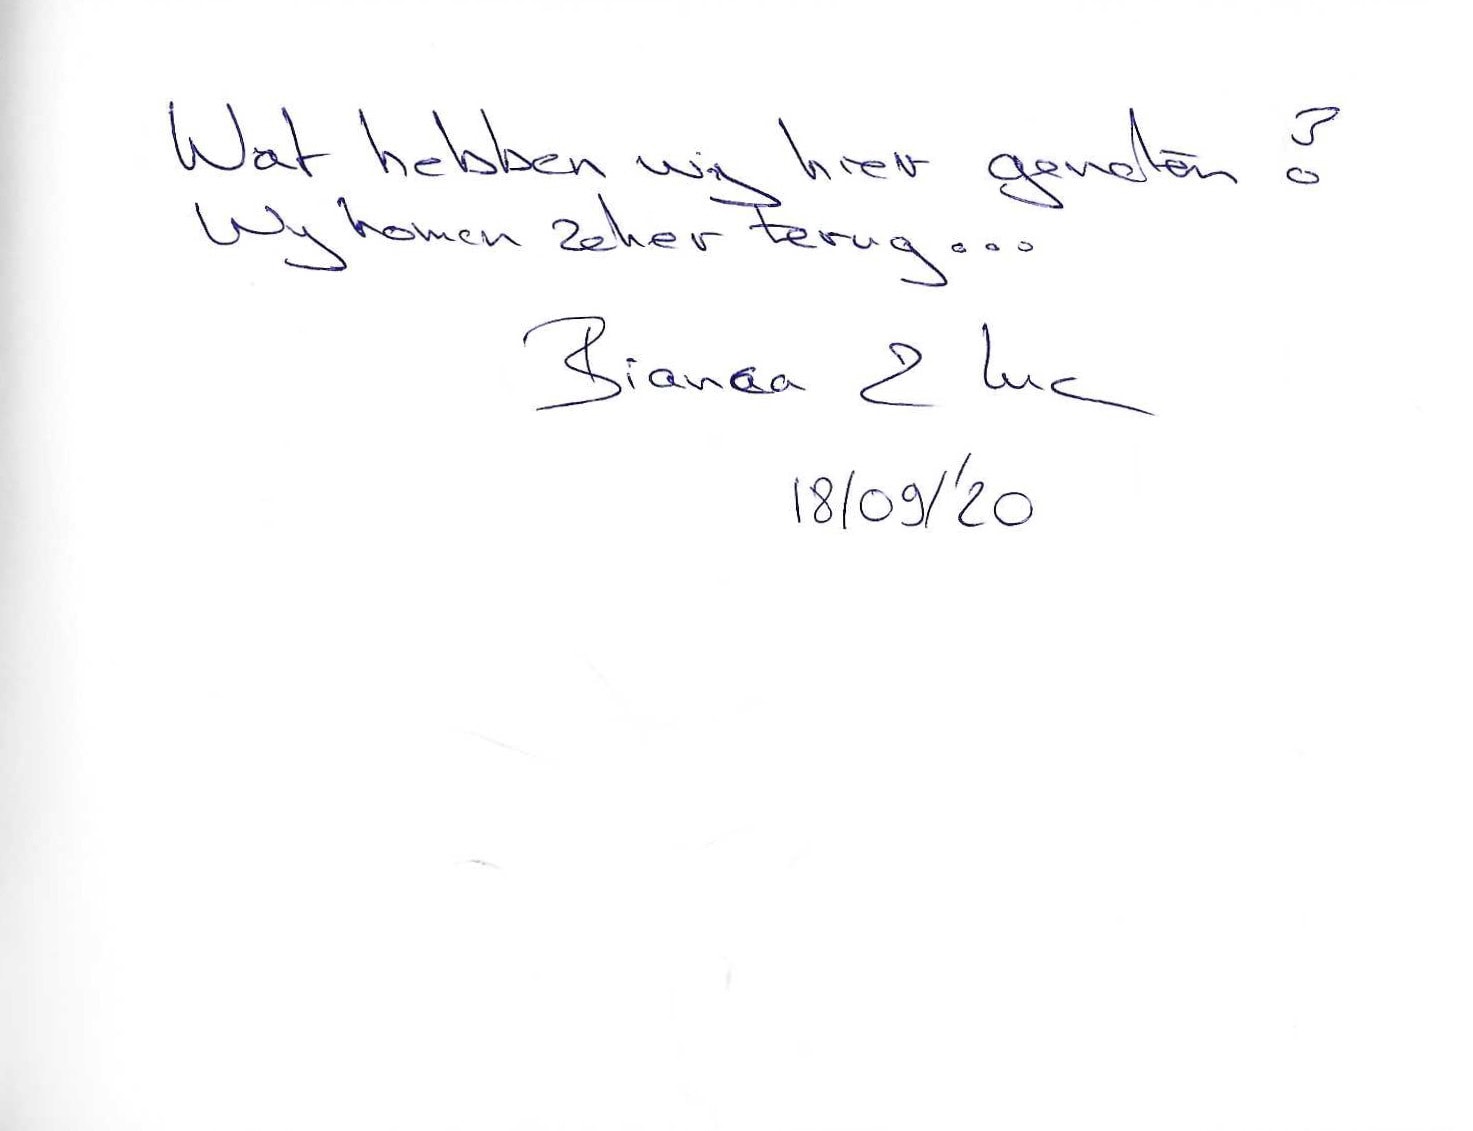 Wat hebben wij hier genoten ?
Wij komen zeker terug...
Bianca & Luc
18/09/'20